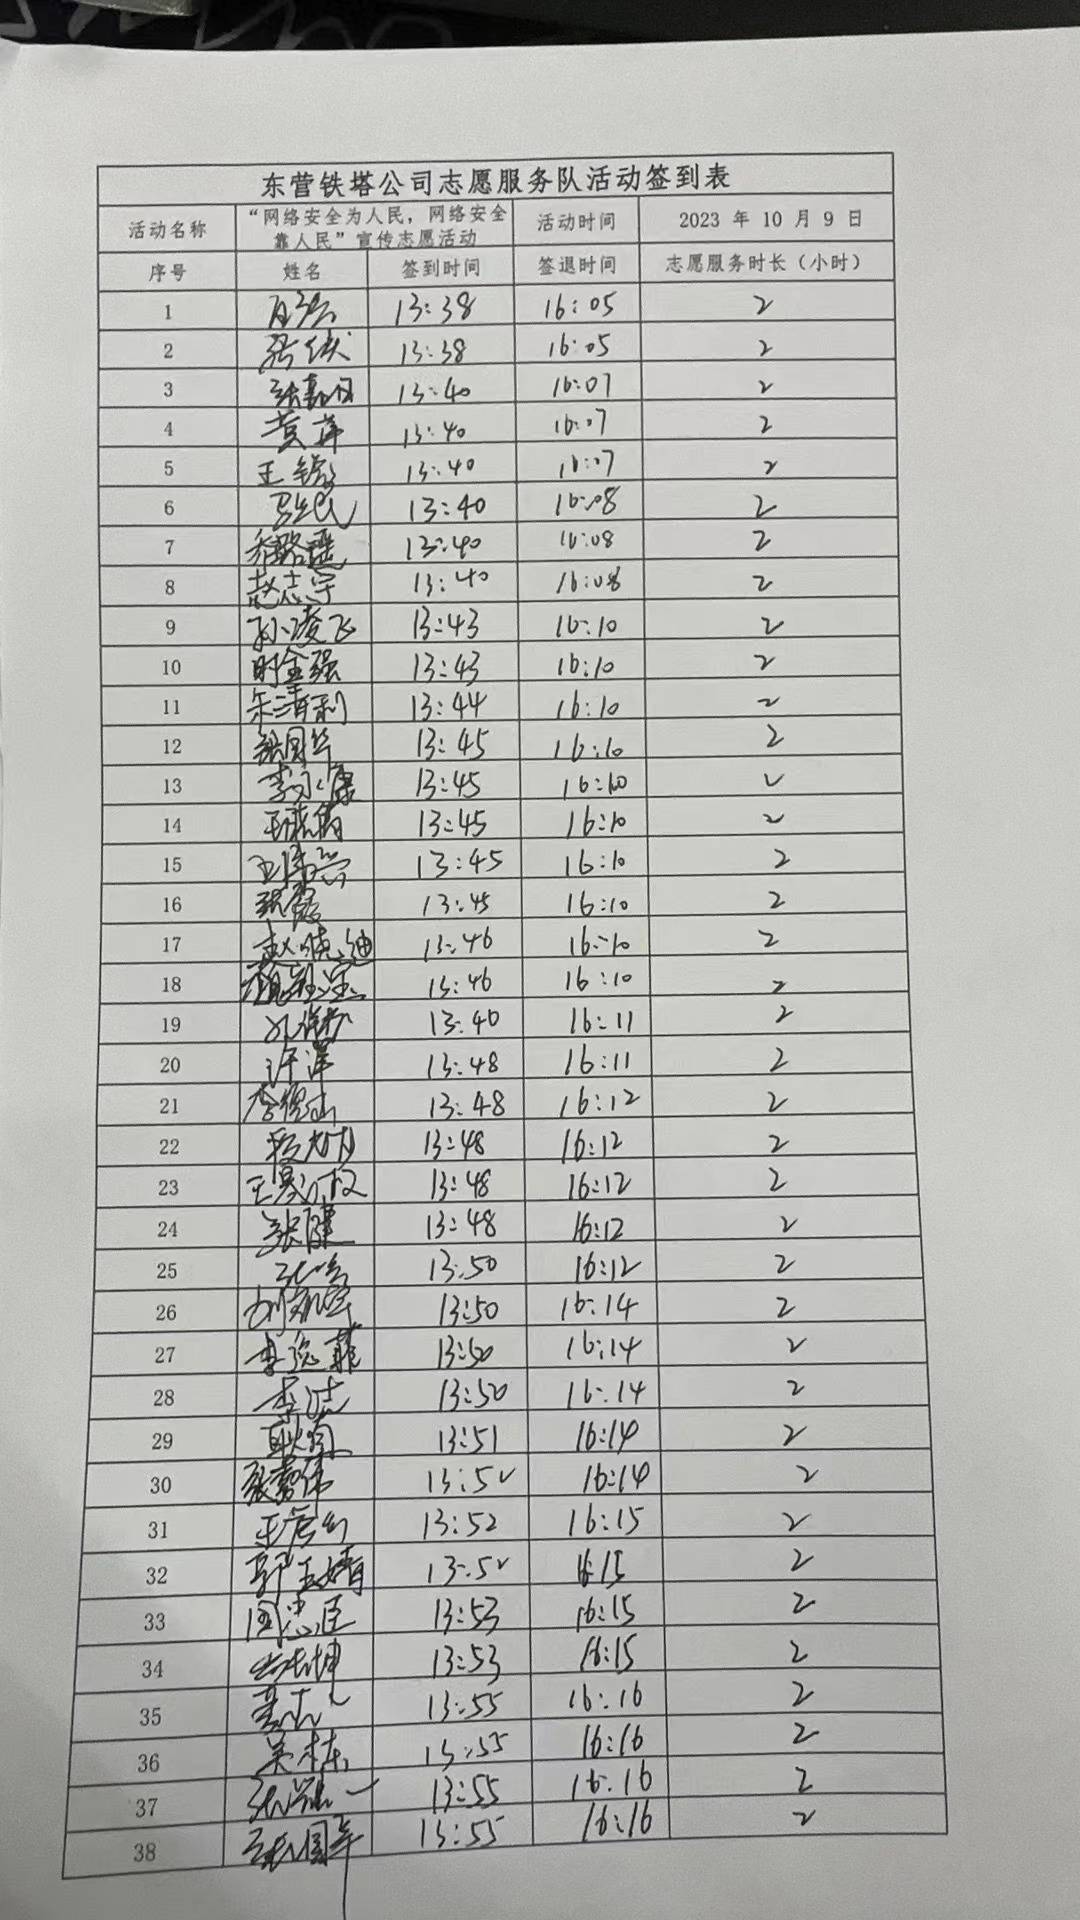 东营铁塔公司志愿服务队活动签到表
活动名称 “网络安全为人民，网络安全靠人民”宣传志愿活动 活动时间 2023 年 10 月 9 日
序号 姓名 签到时间 签退时间 志愿服务时长（小时）
1 13:38 16:05 2
2 13:38 16:05 2
3 13:40 16:07 2
4 黄萍 13:40 16:07 2
5 13:40 16:07 2
6 13:40 16:08 2
7 13:40 16:08 2
8 赵志宇 13:40 16:08 2
9 孙凌飞 13:43 16:10 2
10 时金强 13:43 16:10 2
11 13:44 16:10 2
12 13:45 16:10 2
13 李永康 13:45 16:10 2
14 13:45 16:10 2
15 13:45 16:10 2
16 13:45 16:10 2
17 13:46 16:10 2
18 13:46 16:10 2
19 16:11 2
20 许洋 13:48 16:11 2
21 13:48 16:12 2
22 13:48 16:12 2
23 13:48 16:12 2
24 张健 13:48 16:12 2
25 13:50 16:12 2
26 13:50 16:14 2
27 李逸菲 13:50 16:14 2
28 李洁 13:50 16:14 2
29 13:51 16:14 2
30 张嘉伟 13:52 16:14 2
31 13:52 16:15 2
32 郭玉婧 13:52 16:15 2
33 周忠臣 13:53 16:15 2
34 13:53 16:15 2
35 13:55 16:16 2
36 吴栋 13:55 16:16 2
37 13:55 16:16 2
38 13:55 16:16 2